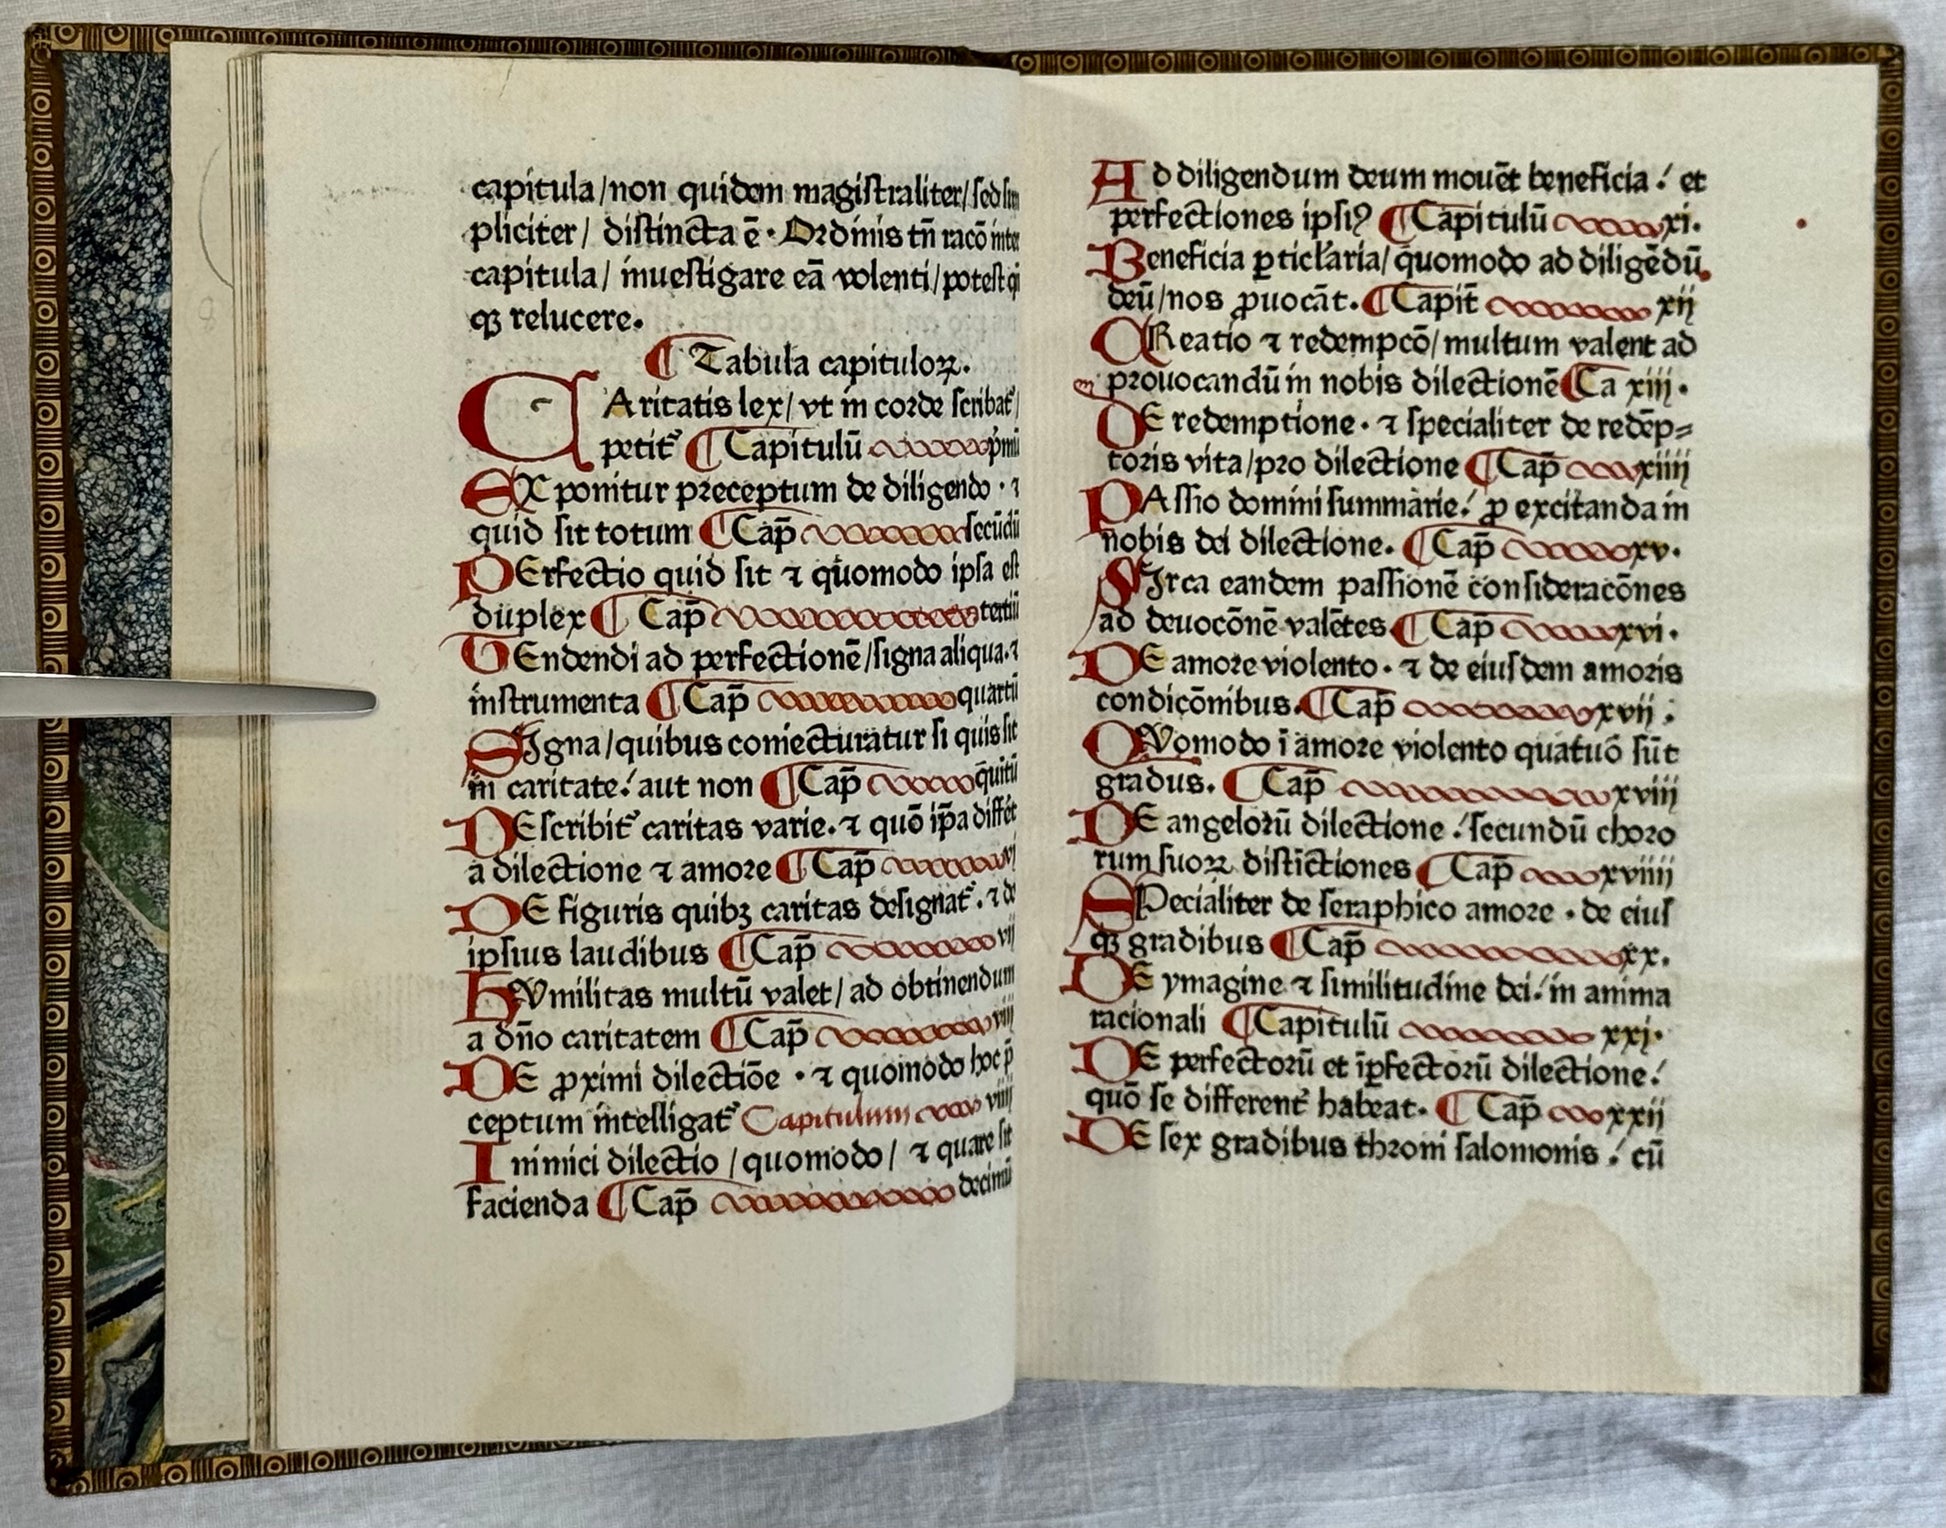 capitula/non quidem magistraliter/sed sim
pliciter/ distincta ē. Ordinis tn̄ racō inter
capitula/ inuestigare eā volenti/potest
qꝫ relucere.
¶ Tabula capituloꝝ.
CAritatis lex/ vt in corde scribat᷑/
petit᷑ ¶ Capitulū pmū
EX ponitur preceptum de diligendo. ⁊
quid sit totum ¶ Cap̄ secūdū
PErfectio quid sit ⁊ quomodo ipsa est
duplex ¶ Cap̄ tertiū
TEndendi ad perfectionē/signa aliqua. ⁊
instrumenta ¶ Cap̄ quartū
SIgna/quibus coniecturatur si quis sit
in caritate: aut non ¶ Cap̄ quītū
DEscribit᷑ caritas varie. ⁊ quō ip̄a differt
a dilectione ⁊ amore ¶ Cap̄ vj
DE figuris quibꝫ caritas designat᷑. ⁊ de
ipsius laudibus ¶ Cap̄ vij
HVmilitas multū valet/ ad obtinendum
a dn̄o caritatem ¶ Cap̄ viij
DE ꝓximi dilectiōe. ⁊ quomodo hoc p̄
ceptum intelligat᷑ Capitulum viiij
Inimici dilectio/quomodo/ ⁊ quare sit
facienda ¶ Cap̄ decimū
Ad diligendum deum mouēt beneficia: et
perfectiones ipsiꝰ ¶ Capitulū xi.
Beneficia ꝑticl'aria/ quomodo ad diligēdū
deū/nos ꝓuocāt. ¶ Capit̄ xij
CReatio ⁊ redempcō/ multum valent ad
prouocandū in nobis dilectionē ¶ Ca xiij.
DE redemptione. ⁊ specialiter de redēp=
toris vita/pro dilectione ¶ Cap̄ xiiij
PAssio domini summarie: ꝓ excitanda in
nobis dei dilectione. ¶ Cap̄ xv.
Irca eandem passionē consideracōnes
ad deuocōnē valētes ¶ Cap̄ xvi.
DE amore violento. ⁊ de eiusdem amoris
condicōnibus. ¶ Cap̄ xvij.
QVomodo ī amore violento quatuō sūt
gradus. ¶ Cap̄ xviij
DE angelorū dilectione: secundū choro
rum suoꝝ distīctiones ¶ Cap̄ xviiij
SPecialiter de seraphico amore. de eius
qꝫ gradibus ¶ Cap̄ xx.
DE ymagine ⁊ similitudine dei: in anima
racionali ¶ Capitulū xxj.
DE perfectorū et īꝑfectorū dilectione:
quō se different᷑ habeat. ¶ Cap̄ xxij
DE sex gradibus throni salomonis: cū